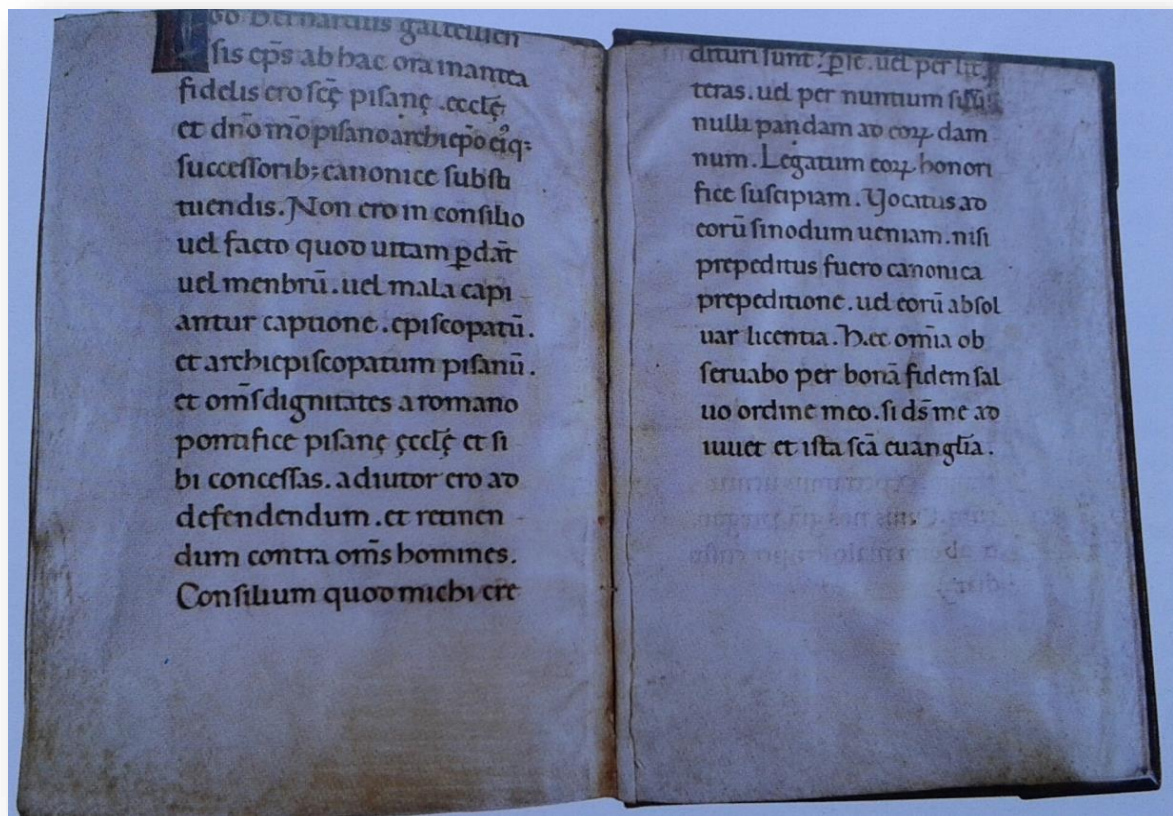 go Bernardus galtellien
sis ep̄s ab hac ora inantea
fidelis ero sc̄ę pisanę .eccl̄ę
et dn̄o m̄o pisano archiep̄o eiꝰq;
successorib; canonice substi
tuendis. Non ero in consilio
uel facto quod uitam ꝑdāt
uel menbrū. uel mala capi
antur captione. episcopatū.
et archiepiscopatum pisanū.
et om̄s dignitates a romano
pontifice pisanę ęccl̄ę et si
bi concessas. adiutor ero ad
defendendum. et retinen
dum contra om̄s homines.
Consilium quod michi cr̄e
dituri sunt. ꝑ se. uel per lit
teras. uel per nuntium suū
nulli pandam ad eoꝝ dam
num. Legatum eoꝝ honori
fice suscipiam. Vocatus ad
eorū sinodum ueniam. nisi
prepeditus fuero canonica
prepeditione. uel eorū absol
uar licentia. Hec om̄ia ob
seruabo per bonā fidem sal
uo ordine meo. si ds̄ me ad
iuuet et ista sc̄a euangl̄ia.